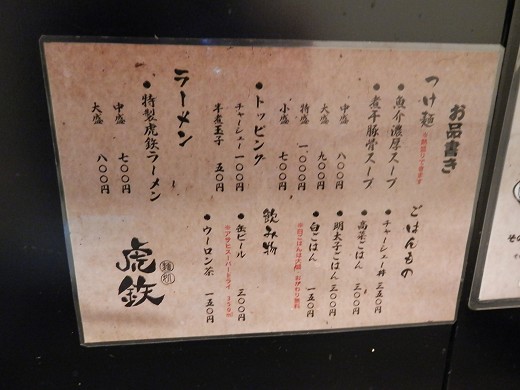 お品書き
つけ麺 ※熱盛りできます
●魚介濃厚スープ
●煮干豚骨スープ
中盛 八〇〇円
大盛 九〇〇円
特盛 一、〇〇〇円
小盛 七〇〇円
●トッピング
チャーシュー 一〇〇円
半煮玉子 五〇円
ラーメン
●特製虎鉄ラーメン
中盛 七〇〇円
大盛 八〇〇円
ごはんもの
●チャーシュー丼 三五〇円
●高菜ごはん 三〇〇円
●明太子ごはん 三〇〇円
●白ごはん 一五〇円
※白ごはんは大盛・おかわり無料
飲み物
●缶ビール 三〇〇円
※アサヒスーパードライ 350ml
●ウーロン茶 一五〇円
麺処
虎鉄
その